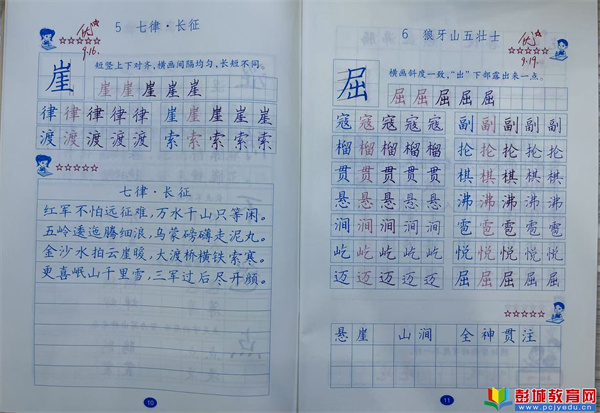 5 七律·长征
优
9.16.
短竖上下对齐,横画间隔均匀,长短不同。
崖 崖 崖 崖 崖 崖
律 律 律 律 律 崖 崖 崖 崖 崖
渡 渡 渡 渡 渡 索 索 索 索 索
七律·长征
红军不怕远征难,万水千山只等闲。
五岭逶迤腾细浪,乌蒙磅礴走泥丸。
金沙水拍云崖暖,大渡桥横铁索寒。
更喜岷山千里雪,三军过后尽开颜。
10
6 狼牙山五壮士
优
9.19.
横画斜度一致,“出”下部露出来一点。
屈 屈 屈 屈 屈 屈
寇 寇 寇 寇 寇 副 副 副 副 副
榴 榴 榴 榴 榴 抡 抡 抡 抡 抡
贯 贯 贯 贯 贯 棋 棋 棋 棋 棋
悬 悬 悬 悬 悬 沸 沸 沸 沸 沸
涧 涧 涧 涧 涧 雹 雹 雹 雹 雹
屹 屹 屹 屹 屹 悦 悦 悦 悦 悦
迈 迈 迈 迈 迈 屈 屈 屈 屈 屈
悬崖 山涧 全神贯注
11
彭城教育网
www.pcjyedu.cn